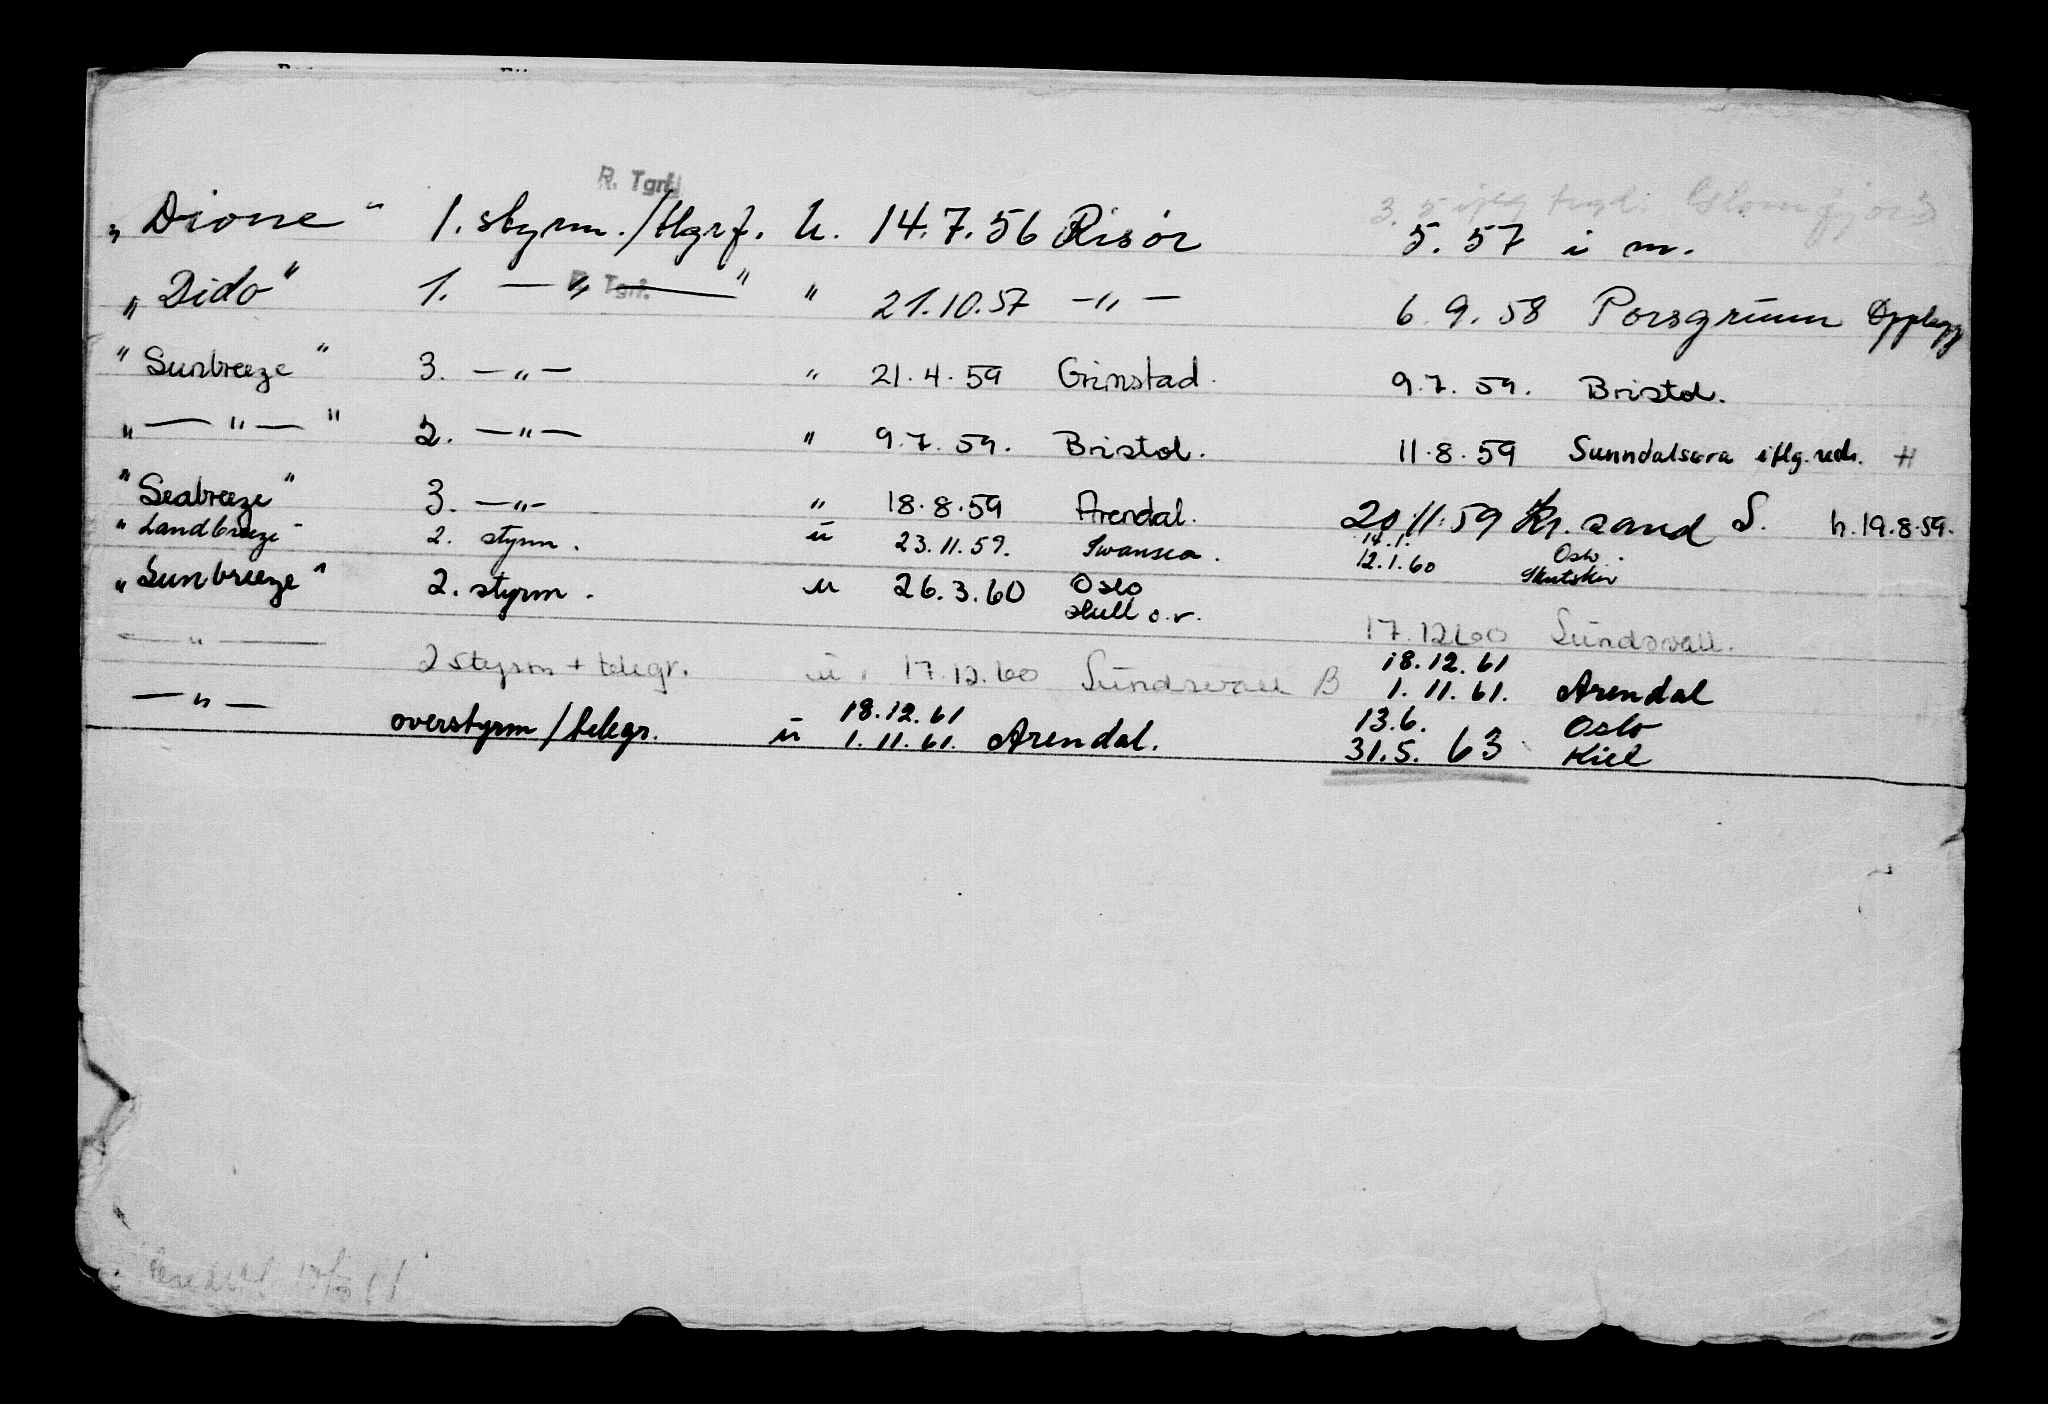 R. Tgrf.
3. 5 iflg
"Dione" 1. styrm./tlgrf. u. 14.7.56 Risör 5. 57 i m.
R. Tgrf.
"Dido" 1. — " — " " 21.10.57 — " — 6. 9. 58 Porsgrunn Opplagg
"Sunbreeze" 3. — " — " 21. 4. 59 Grimstad. 9. 7. 59. Bristol.
" — " — " 2. — " — " 9. 7. 59. Bristol. 11. 8. 59 Sunndalsøra iflg. red. H
"Seabreeze" 3. — " — " 18. 8. 59 Arendal. 20.11.59 Kr. sand S. h. 19.8.59.
14.1. Oslo.
"Landbreeze" 2. styrm. u 23.11.59. Swansea. 12.1.60 Skutskär
"Sunbreeze" 2. styrm. u 26. 3. 60 Oslo
Hull o.r.
17.12.60 Sundsvall.
— " — 2 styrm + telegr. u. 17.12.60 Sundsvall B 18.12.61
1. 11. 61. Arendal
— " — 18.12.61 13.6. Oslo
overstyrm/telegr. u 1. 11. 61. Arendal. 31.5. 63 Kiel